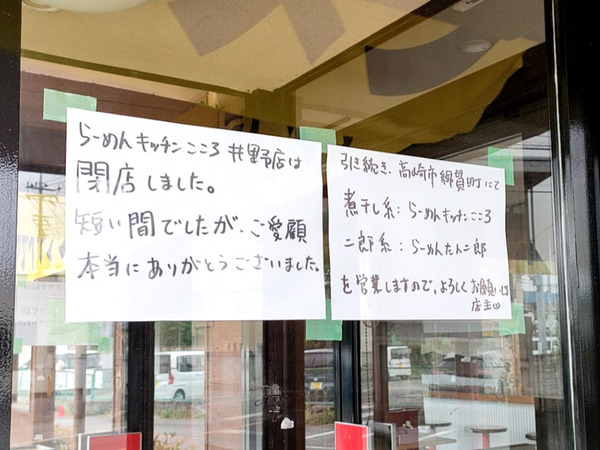 らーめんキッチンこころ 井野店は
閉店しました。
短い間でしたが、ご愛顧
本当にありがとうございました。
引き続き、高崎市綿貫町にて
煮干し系：らーめんキッチンこころ
二郎系：らーめんたん二郎
を営業しますので、よろしくお願いします
店主